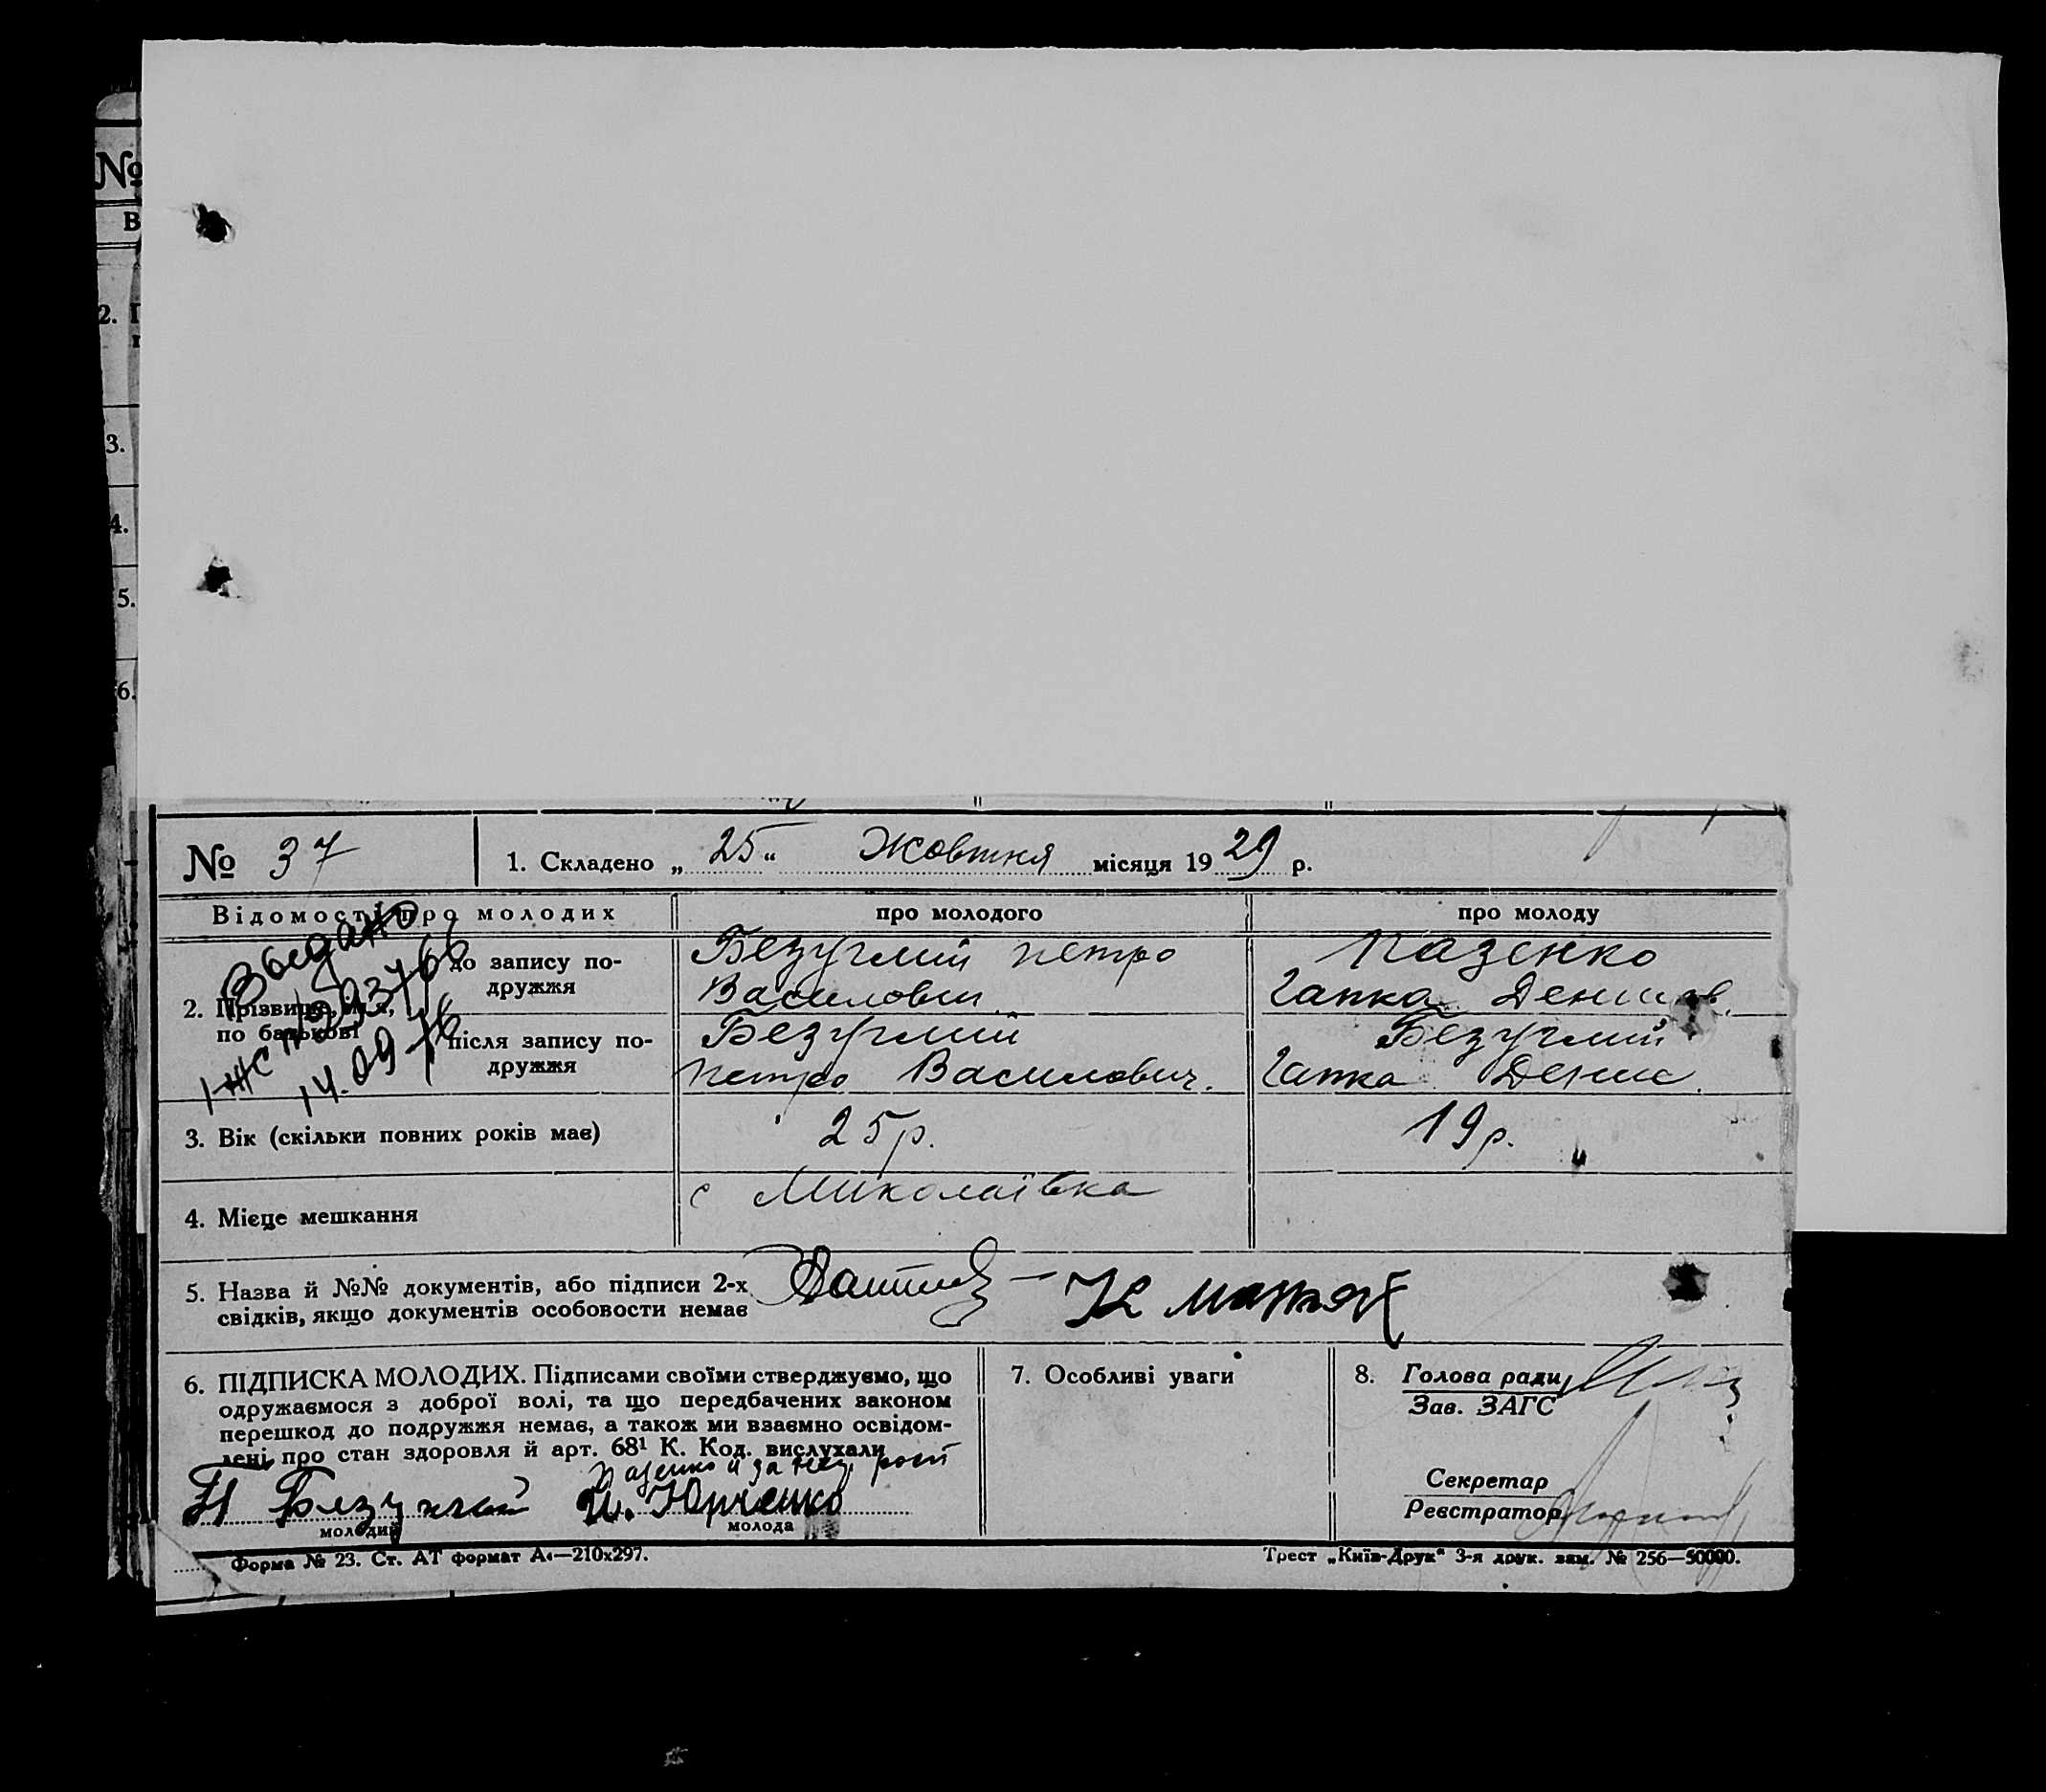 №
В
2. П
3.
4.
5.
6.
№ 37
1. Складено „ 25 “ Жовтня місяця 19 29 р.
Відомості про молодих
про молодого
про молоду
Выдано
14.09-76
2. Прізвище, ім'я, по батькові
до запису по-
дружжя
Безуглий петро
Василович
Пазенко
Гапка Денисов.
після запису по-
дружжя
Безуглий
петро Василович.
Безуглий
Гапка Денис.
3. Вік (скільки повних років має)
25 р.
19 р.
4. Місце мешкання
с Миколаївка
5. Назва й №№ документів, або підписи 2-х
свідків, якщо документів особовости немає
6. ПІДПИСКА МОЛОДИХ. Підписами своїми стверджуємо, що
одружаємося з доброї волі, та що передбачених законом
перешкод до подружжя немає, а також ми взаємно освідом-
лені про стан здоровля й арт. 68¹ К. Код. вислухали
Пазенко й за неї
П Безуглий
И. Юрченко
молодий
молода
7. Особливі уваги
8. Голова ради
Зав. ЗАГС
Секретар
Реєстратор
Форма № 23. Ст. АТ формат А₄—210х297.
Трест „Київ-Друк“ 3-я друк. зам. № 256—50000.